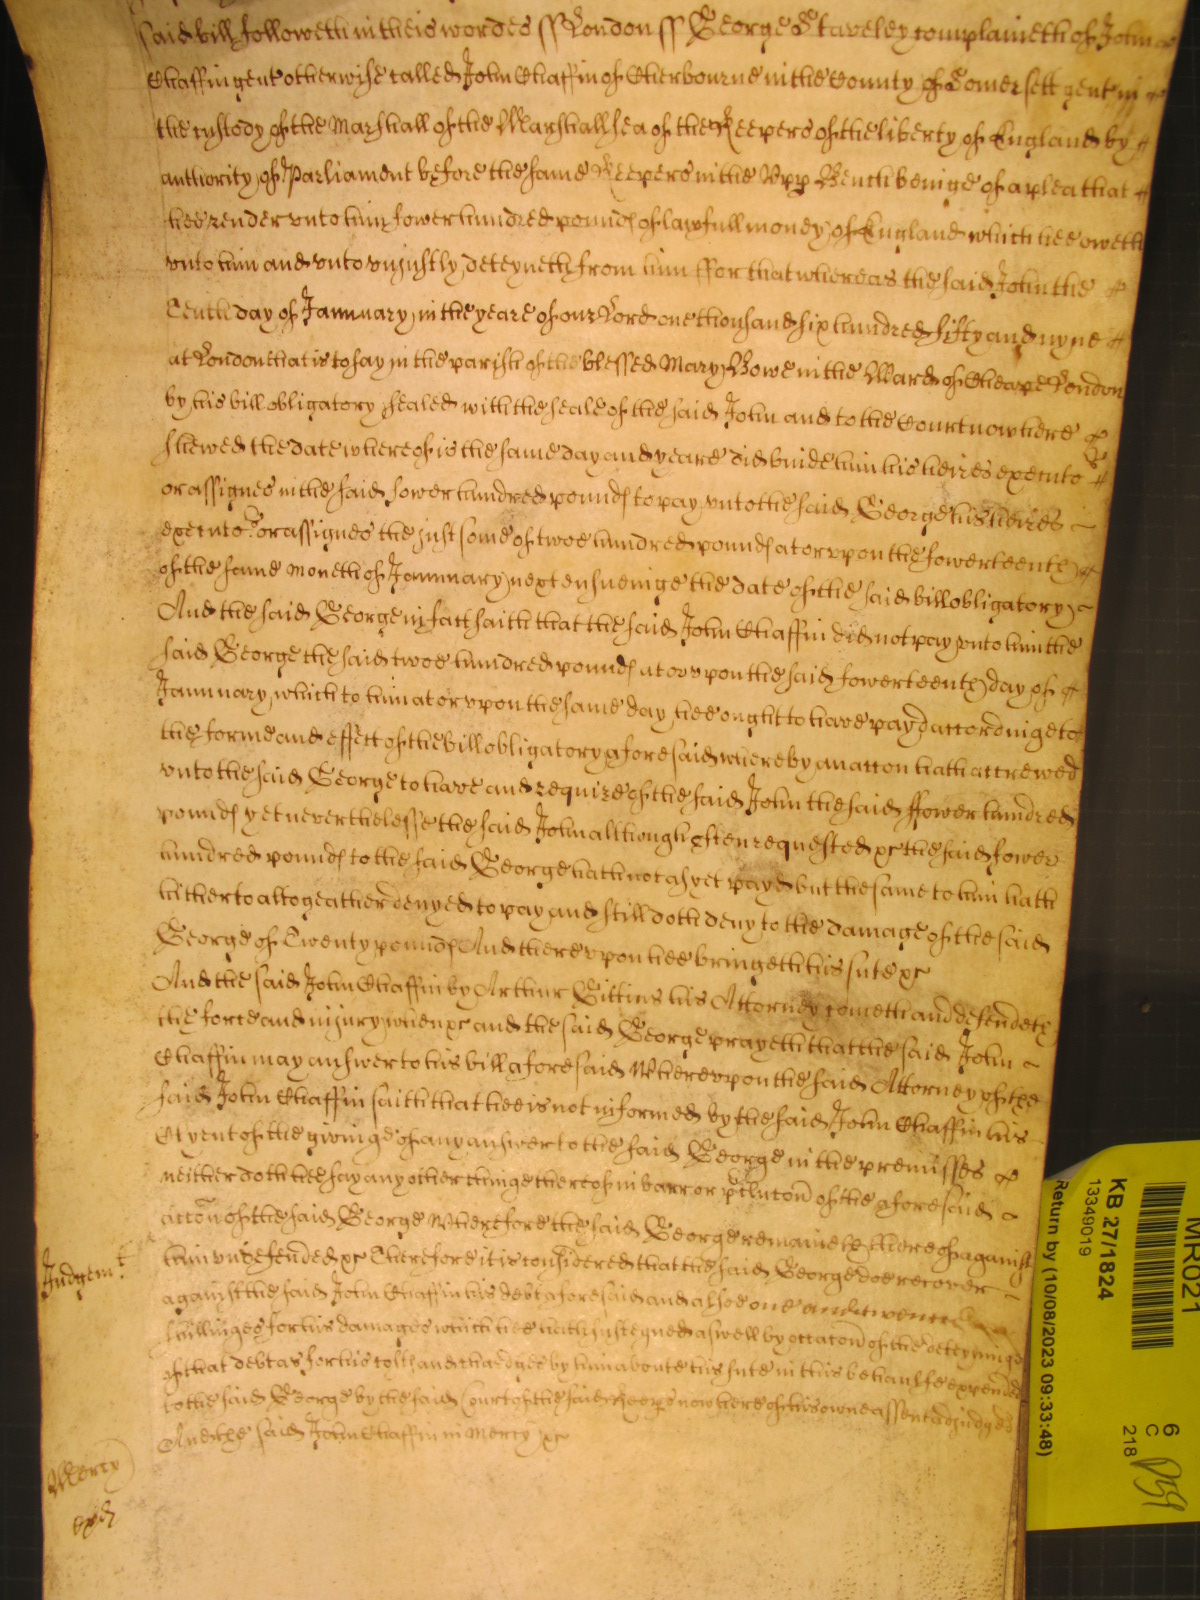 said bill followeth in theis wordes ss London ss George Staveley complaineth of John
Chaffin gent otherwise called John Chaffin of Cherbourne in the County of Somersett gent in
the custody of the Marshall of the Marshallsea of the Keepers of the liberty of England by
authority of Parliament before the same Keepers in the Upp Bench beinge of a plea that
hee render unto him fower hundred pounds of lawfull money of England which hee oweth
unto him and unto unjustly deteyneth from him ffor that whereas the said John the
Tenth day of Jannuary in the yeare of our Lord one thousand six hundred fifty and nyne
at London that is to say in the parish of the blessed Mary Bowe in the Ward of Cheape London
by his bill obligatory sealed with the seale of the said John and to the Court now here
shewed the date whereof is the same day and yeare did binde him his heires executors
or assignes in the said fower hundred pounds to pay unto the said George his heires
executors or assignes the just some of twoe hundred pounds at or upon the fowerteenth
of the same moneth of Jannuary next ensueinge the date of the said bill obligatory
And the said George in fact saith that the said John Chaffin did not pay unto him the
said George the said twoe hundred pounds at or upon the said fowerteenth day of
Jannuary which to him at or upon the same day hee ought to have payd accordinge to
the forme and effect of the bill obligatory aforesaid whereby an accon hath accrewed
unto the said George to have and require of the said John the said ffower hundred
pounds yet neverthelesse the said John although often requested &c the said fower
hundred pounds to the said George hath not as yet payd but the same to him hath
hitherto altogeather denyed to pay and still doth deny to the damage of the said
George of Twenty pounds And thereupon hee bringeth his sute &c
And the said John Chaffin by Arthur Gittins his Attorney cometh and defendeth
the force and injury when &c and the said George prayeth that the said John
Chaffin may answer to his bill aforesaid Whereupon the said Attorney of the
said John Chaffin saith that hee is not informed by the said John Chaffin his
Clyent of the givinge of any answer to the said George in the premisses
neither doth hee say any other thinge thereof in barr or p'clution of the aforesaid
accon of the said George Wherefore the said George remaineth thereof against
him undefended &c Therefore it is considered that the said George doe recover
against the said John Chaffin his debt aforesaid and alsoe one and twentie
shillinges for his damages which hee hath susteyned aswell by occation of the deteyninge
of that debt as for his costs and chardges by him aboute his sute in this behaulfe expended
to the said George by the said Court of the said Keepers now here of his owne assent adjudged
And the said John Chaffin in Mercy &c
Judgemt
Mercy
MR021
KB 27/1824
13349019
Return by (10/08/2023 09:33:48)
6
C
218